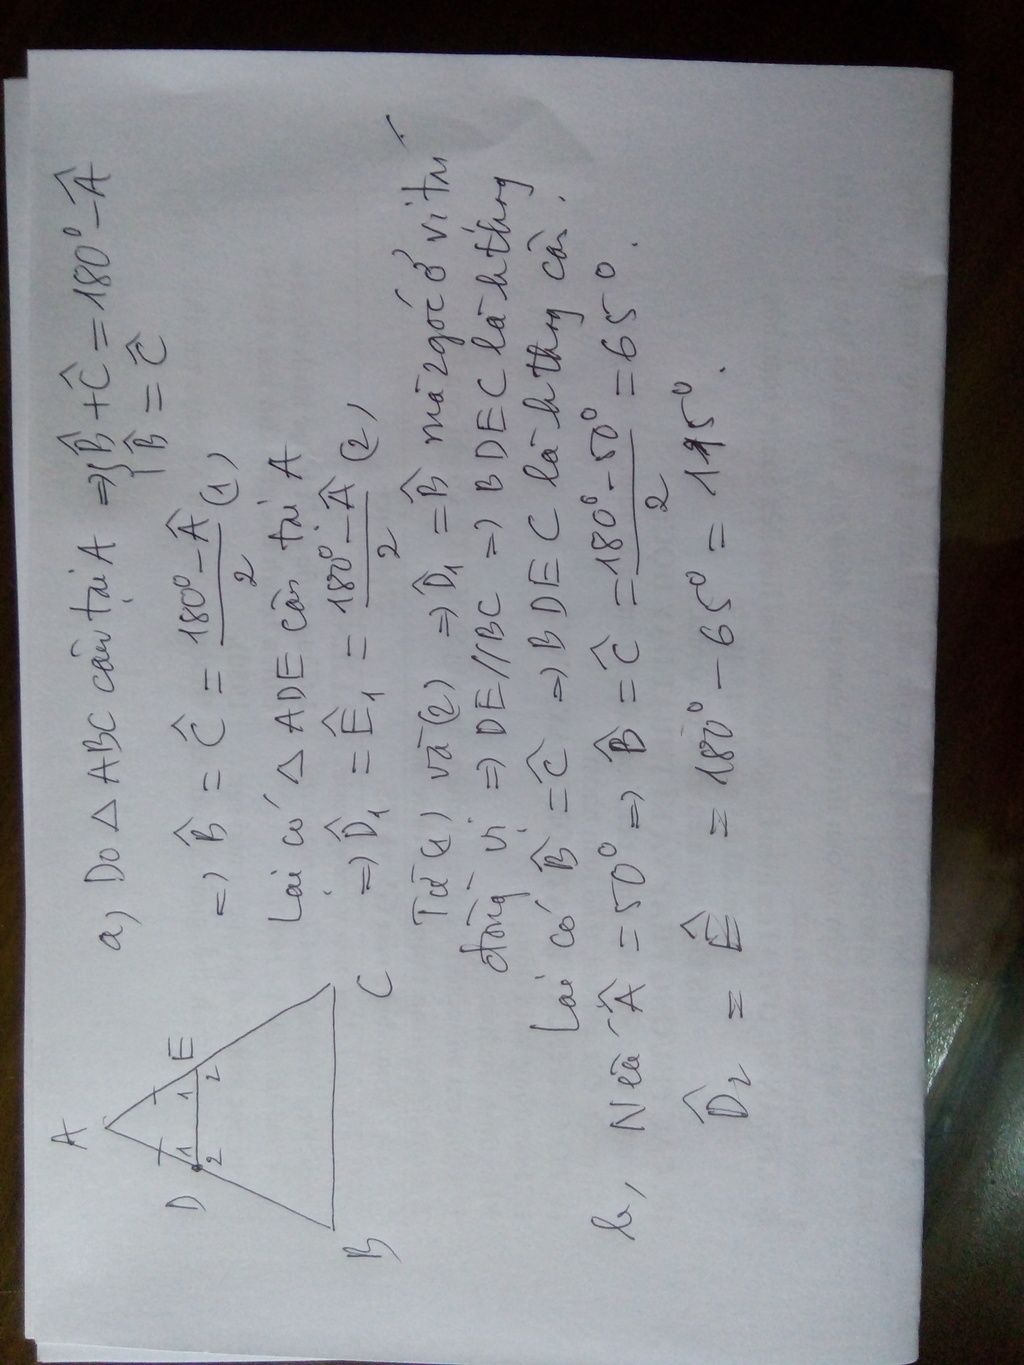 A
D
E
1
1
2
2
B
C
a, Do △ ABC cân tại A ⇒ { B̂ + Ĉ = 180⁰ - Â
B̂ = Ĉ
⇒ B̂ = Ĉ = (180⁰ - Â)/2 (1)
Lại có △ ADE cân tại A
⇒ D̂₁ = Ê₁ = (180⁰ - Â)/2 (2)
Từ (1) và (2) ⇒ D̂₁ = B̂ mà 2 góc ở vị trí
đồng vị ⇒ DE // BC ⇒ BDEC là h thang
Lại có B̂ = Ĉ ⇒ BDEC là h thang cân.
b, Nếu Â = 50⁰ ⇒ B̂ = Ĉ = (180⁰ - 50⁰)/2 = 65⁰.
D̂₂ = Ê = 180⁰ - 65⁰ = 115⁰.